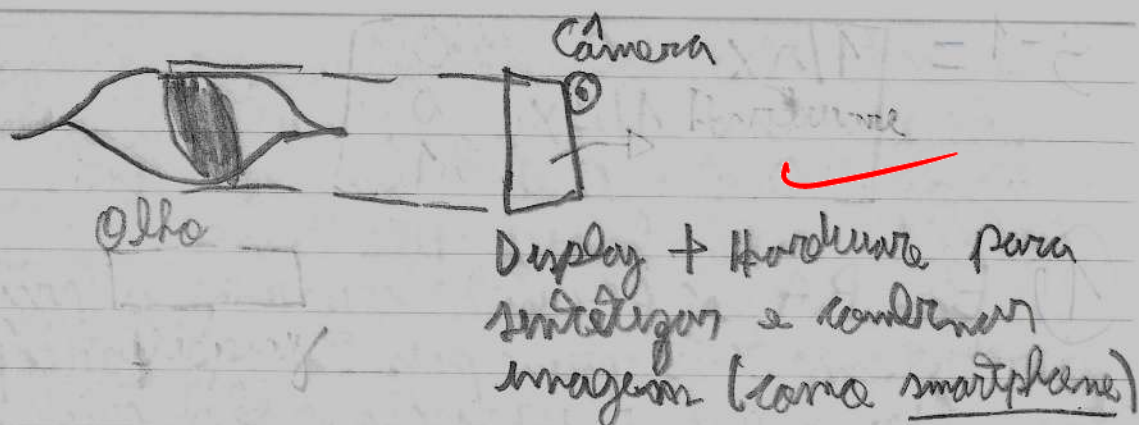 Câmera
Olho
Display + Hardware para
sintetizar e combinar
imagem (como smartphone)